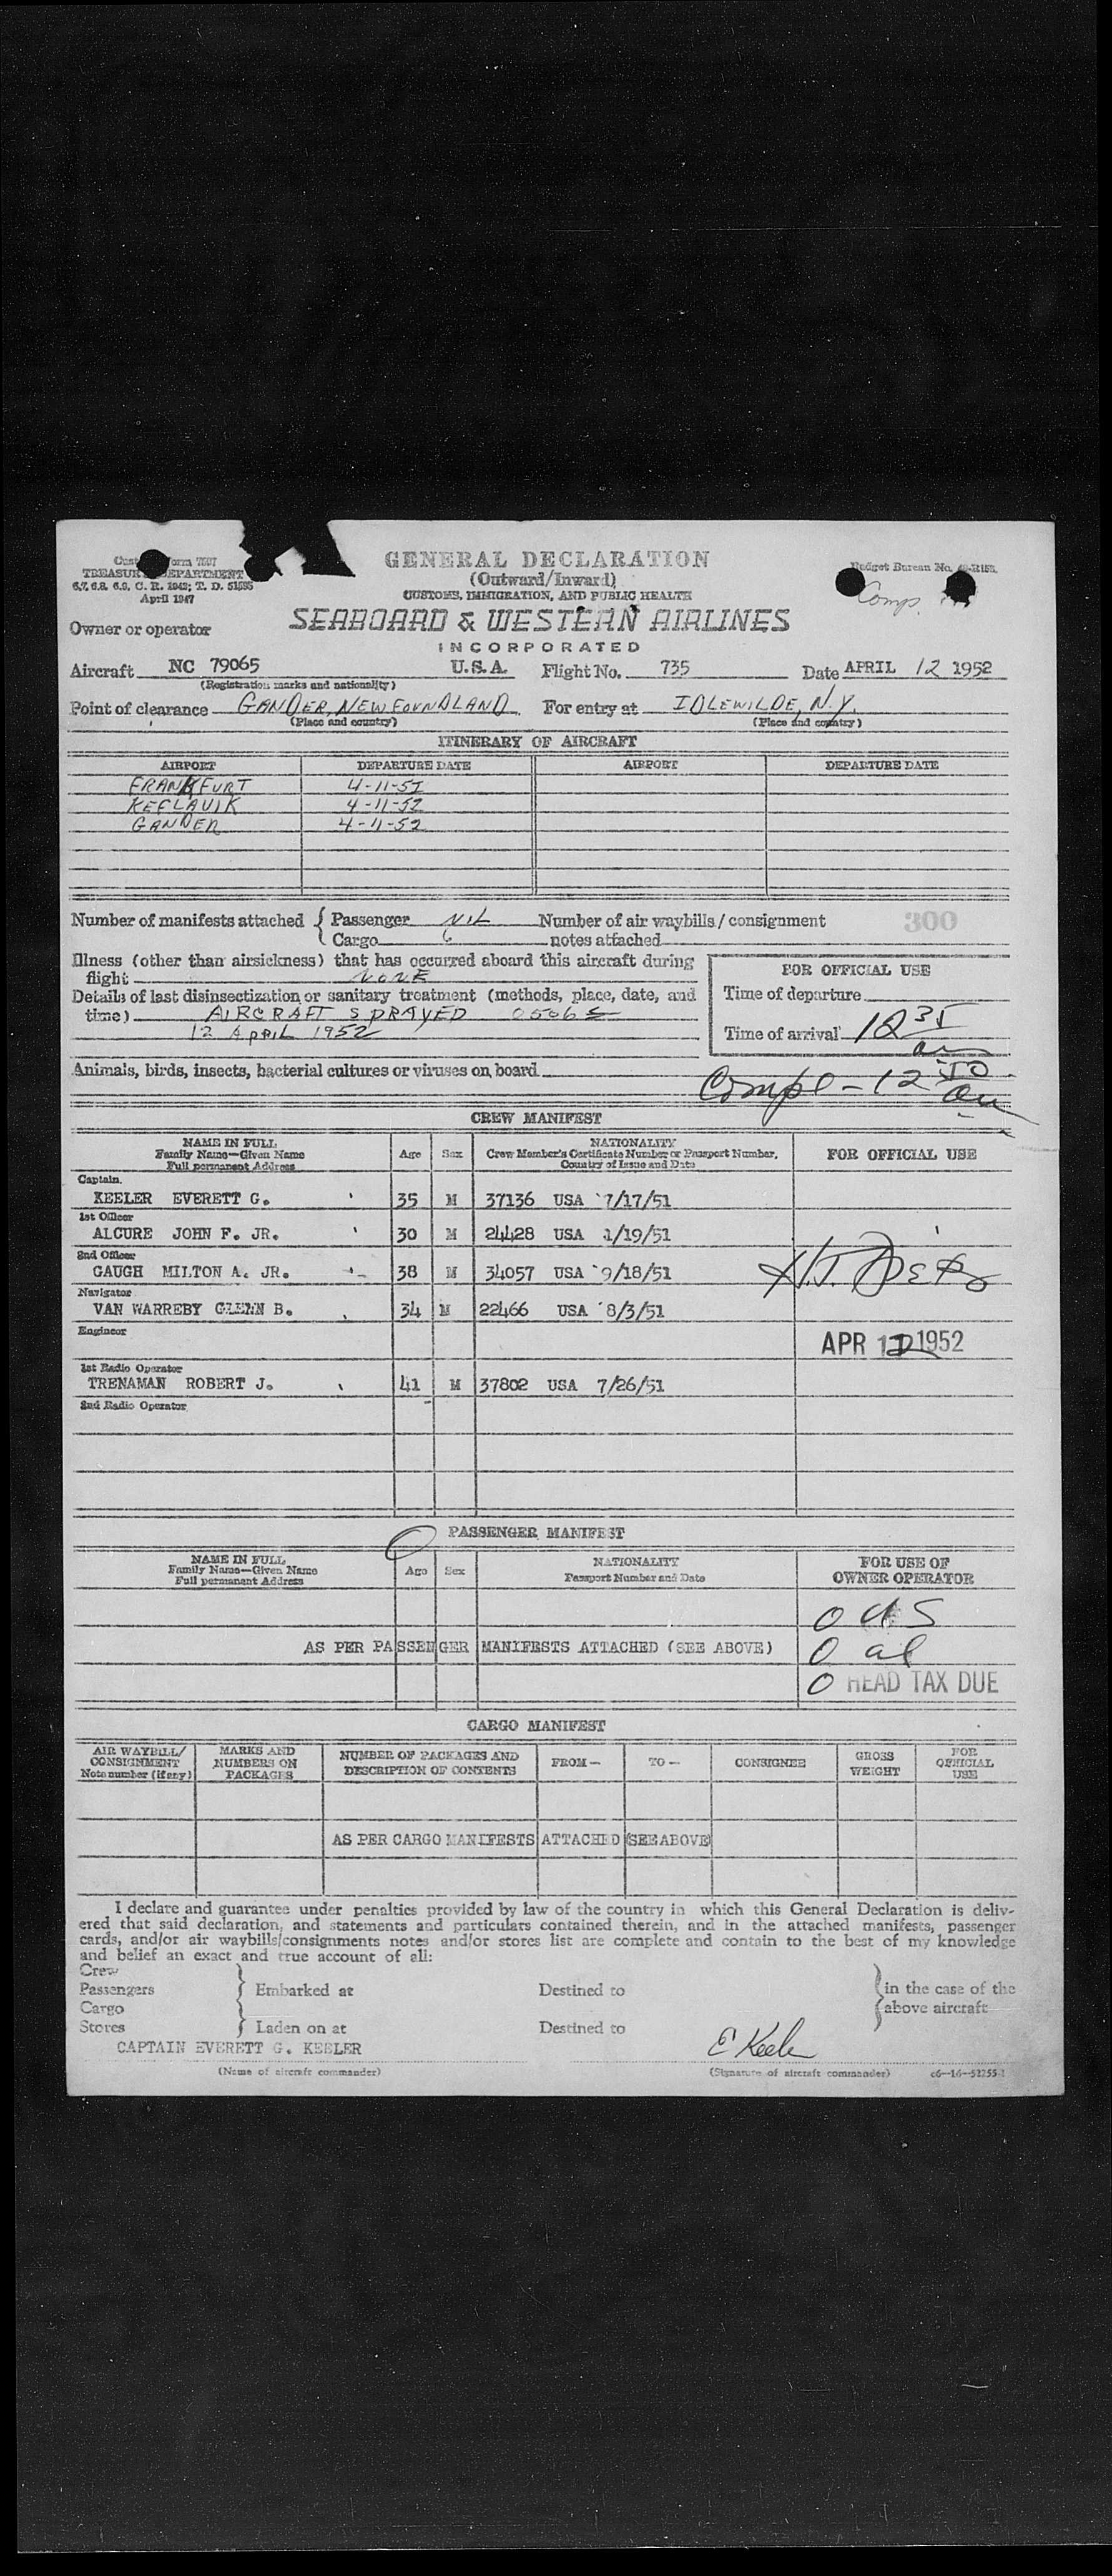 Form 7507
TREASURY DEPARTMENT
April 1947
GENERAL DECLARATION
(Outward/Inward)
CUSTOMS, IMMIGRATION, AND PUBLIC HEALTH
Budget Bureau No.
Comp.
SEABOARD & WESTERN AIRLINES
INCORPORATED
Owner or operator
Aircraft NC 79065 U.S.A. Flight No. 735 Date APRIL 12 1952
(Registration marks and nationality)
Point of clearance GANDER, NEWFOUNDLAND For entry at IDLEWILDE, N.Y.
(Place and country) (Place and country)
ITINERARY OF AIRCRAFT
AIRPORT DEPARTURE DATE AIRPORT DEPARTURE DATE
FRANKFURT 4-11-52
KEFLAVIK 4-11-52
GANDER 4-11-52
Number of manifests attached { Passenger NIL Number of air waybills / consignment 300
Cargo 6 notes attached
Illness (other than airsickness) that has occurred aboard this aircraft during
flight NONE
FOR OFFICIAL USE
Details of last disinsectization or sanitary treatment (methods, place, date, and
time) AIRCRAFT SPRAYED
12 APRIL 1952
Time of departure
Time of arrival 12 35 am
Animals, birds, insects, bacterial cultures or viruses on board
Compl - 12 50 am
CREW MANIFEST
NAME IN FULL
Family Name—Given Name
Full permanent Address
Age Sex
NATIONALITY
Crew Member's Certificate Number or Passport Number,
Country of Issue and Date
FOR OFFICIAL USE
Captain
KEELER EVERETT G. 35 M 37136 USA 7/17/51
1st Officer
ALCURE JOHN F. JR. 30 M 24428 USA 1/19/51
2nd Officer
GAUGH MILTON A. JR. 38 M 34057 USA 9/18/51
Navigator
VAN WARREBY GLENN B. 34 M 22466 USA 8/3/51
Engineer
APR 12 1952
1st Radio Operator
TRENAMAN ROBERT J. 41 M 37802 USA 7/26/51
2nd Radio Operator
0 PASSENGER MANIFEST
NAME IN FULL
Family Name—Given Name
Full permanent Address
Age Sex
NATIONALITY
Passport Number and Date
FOR USE OF
OWNER OPERATOR
0 US
AS PER PASSENGER MANIFESTS ATTACHED (SEE ABOVE) 0 al
0 HEAD TAX DUE
CARGO MANIFEST
AIR WAYBILL/
CONSIGNMENT
Note number (if any)
MARKS AND
NUMBERS ON
PACKAGES
NUMBER OF PACKAGES AND
DESCRIPTION OF CONTENTS
FROM— TO— CONSIGNEE
GROSS
WEIGHT
FOR
OFFICIAL
USE
AS PER CARGO MANIFESTS ATTACHED (SEE ABOVE)
I declare and guarantee under penalties provided by law of the country in which this General Declaration is deliv-
ered that said declaration, and statements and particulars contained therein, and in the attached manifests, passenger
cards, and/or air waybills/consignments notes and/or stores list are complete and contain to the best of my knowledge
and belief an exact and true account of all:
Crew
Passengers } Embarked at Destined to } in the case of the
Cargo above aircraft
Stores } Laden on at Destined to
CAPTAIN EVERETT G. KEELER E Keeler
(Name of aircraft commander) (Signature of aircraft commander) c6—16—51255-1